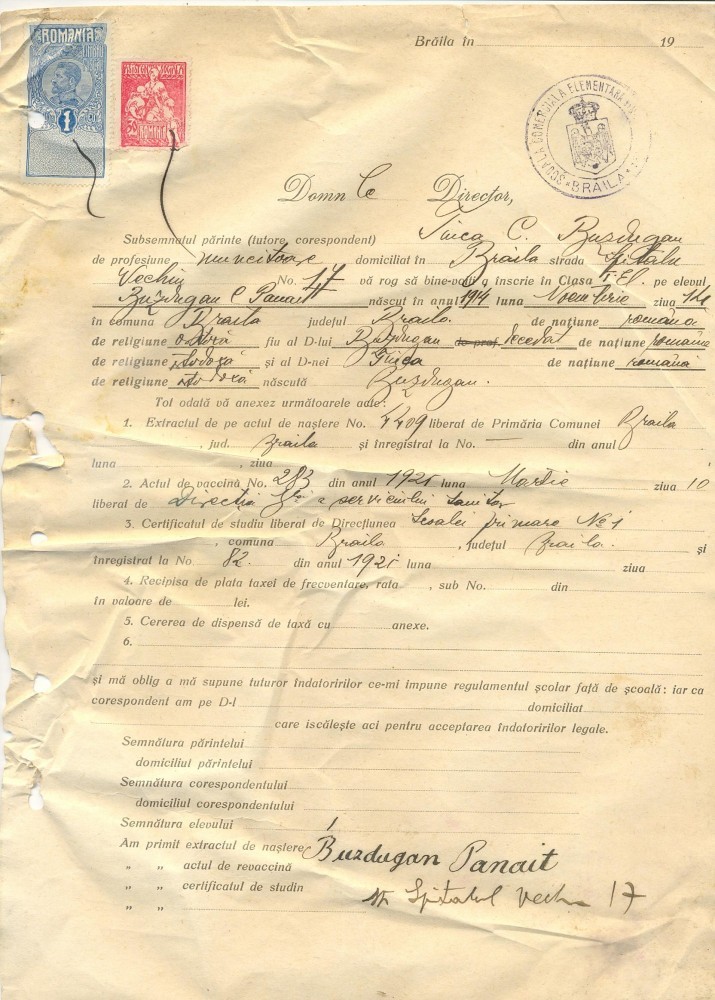 ROMANIA
1
ROMANIA
Brăila în 19
ȘCOALA COMERCIALĂ ELEMENTARĂ
BRĂILA
Domnule Director,
Subsemnatul părinte (tutore, corespondent) Tinca C. Buzdugan
de profesiune muncitoare domiciliat în Brăila strada Spitalu
Vechiu No. 17 vă rog să bine-voiți a înscrie în Clasa I-El. pe elevul
Buzdugan C Panait născut în anul 1914 luna Noembrie ziua 14
în comuna Braila județul Braila. de națiune română
de religiune fiu al D-lui Buzdugan de prof. decedat de națiune română
de religiune și al D-nei Tinca de națiune română
de religiune născută Buzdugan.
Tot odată vă anexez următoarele acte:
1. Extractul de pe actul de naștere No. liberat de Primăria Comunei Braila
, jud. Braila și înregistrat la No. — din anul
luna , ziua
2. Actul de vaccină No. 283 din anul 1921 luna Martie ziua 10
liberat de Direcția a serviciului sanitar
3. Certificatul de studiu liberat de Direcțiunea Școalei primare No 1
, comuna Braila , județul Braila. și
înregistrat la No. 82. din anul 1921 luna ziua
4. Recipisa de plata taxei de frecventare, rata , sub No. din
în valoare de lei.
5. Cererea de dispensă de taxă cu anexe.
6.
și mă oblig a mă supune tuturor îndatoririlor ce-mi impune regulamentul școlar față de școală: iar ca
corespondent am pe D-l domiciliat
care iscălește aci pentru acceptarea îndatoririlor legale.
Semnătura părintelui
domiciliul părintelui
Semnătura corespondentului
domiciliul corespondentului
Semnătura elevului
Am primit extractul de naștere Buzdugan Panait
„ „ actul de revaccină
„ „ certificatul de studin str Spitalul Vechiu 17
„ „